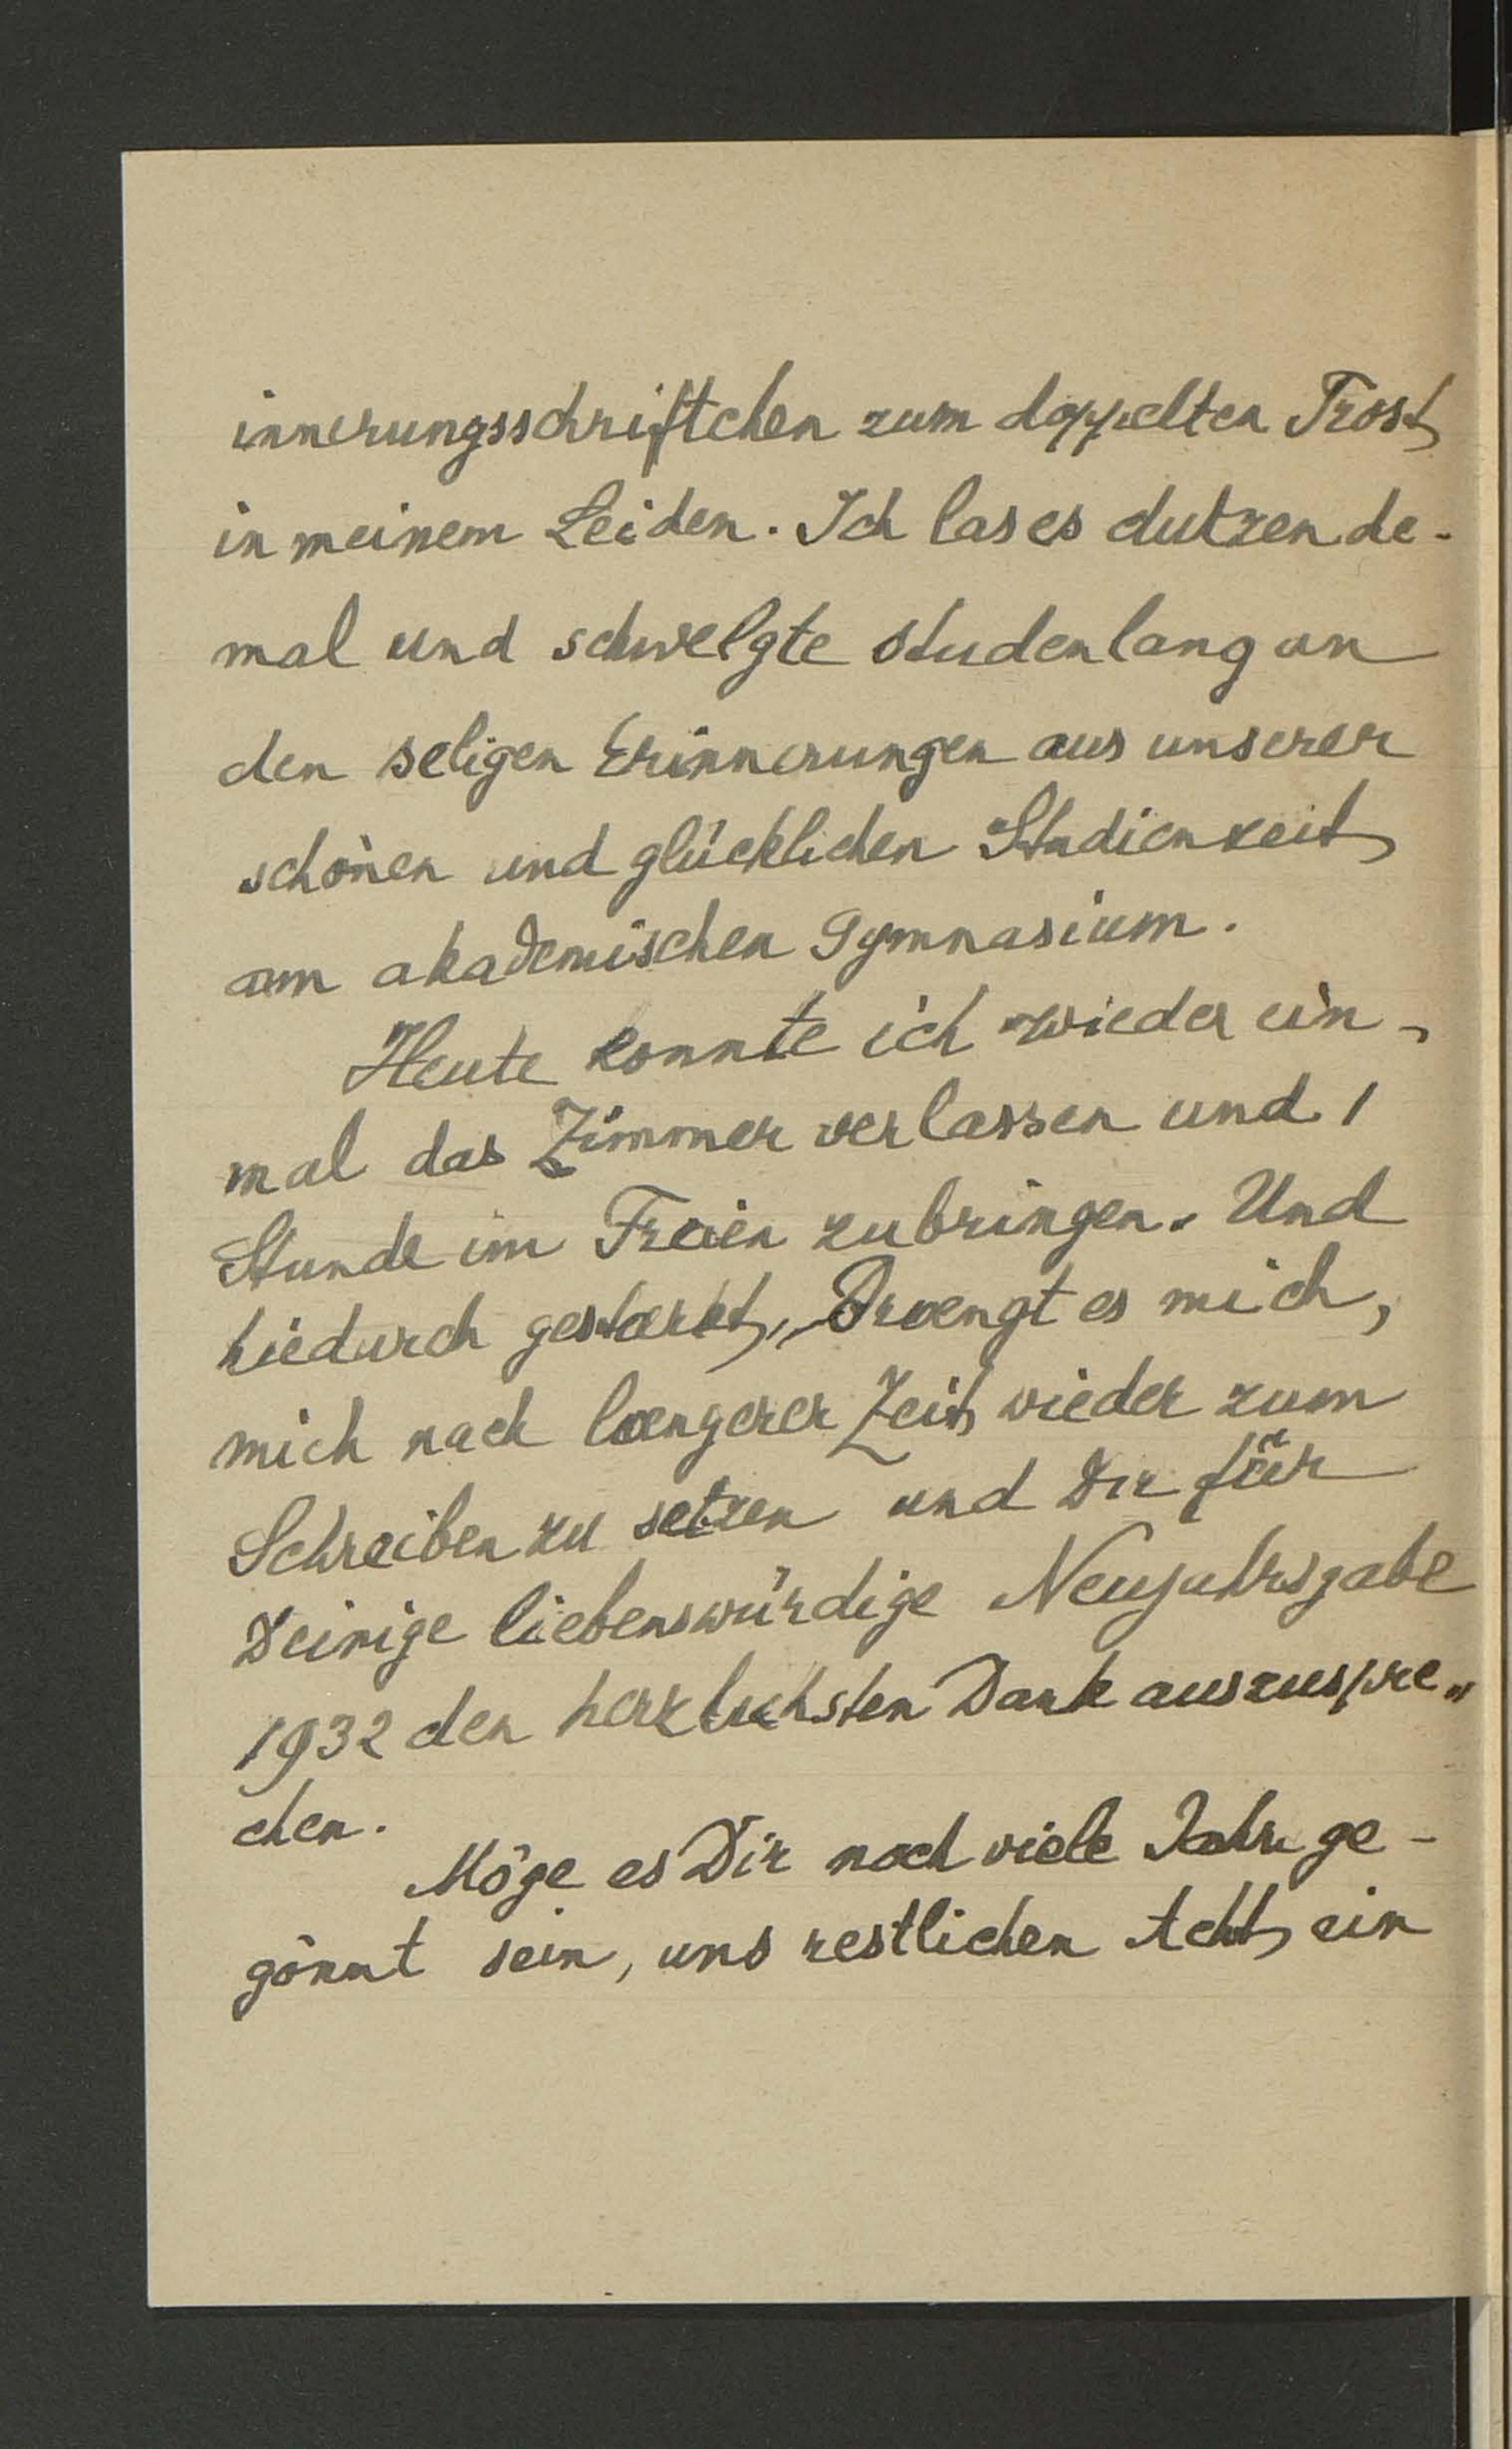 innerungsschriftchen zum doppelten Trost
in meinem Leiden. Ich las es dutzende-
mal und schwelgte studenlang an
den seligen Erinnerungen aus unserer
schönen und glücklichen Studienzeit
am akademischen Gymnasium.
Heute konnte ich wieder ein-
mal das Zimmer verlassen und 1
Stunde im Freien zubringen. Und
hiedurch gestærkt, drængt es mich,
mich nach længerer Zeit wieder zum
Schreiben zu setzen und Dir für
Deinige liebenswürdige Neujahrsgabe
1932 den herzlichsten Dank auszuspre„
chen.
Möge es Dir noch viele Jahre ge-
gönnt sein, uns restlichen Acht ein